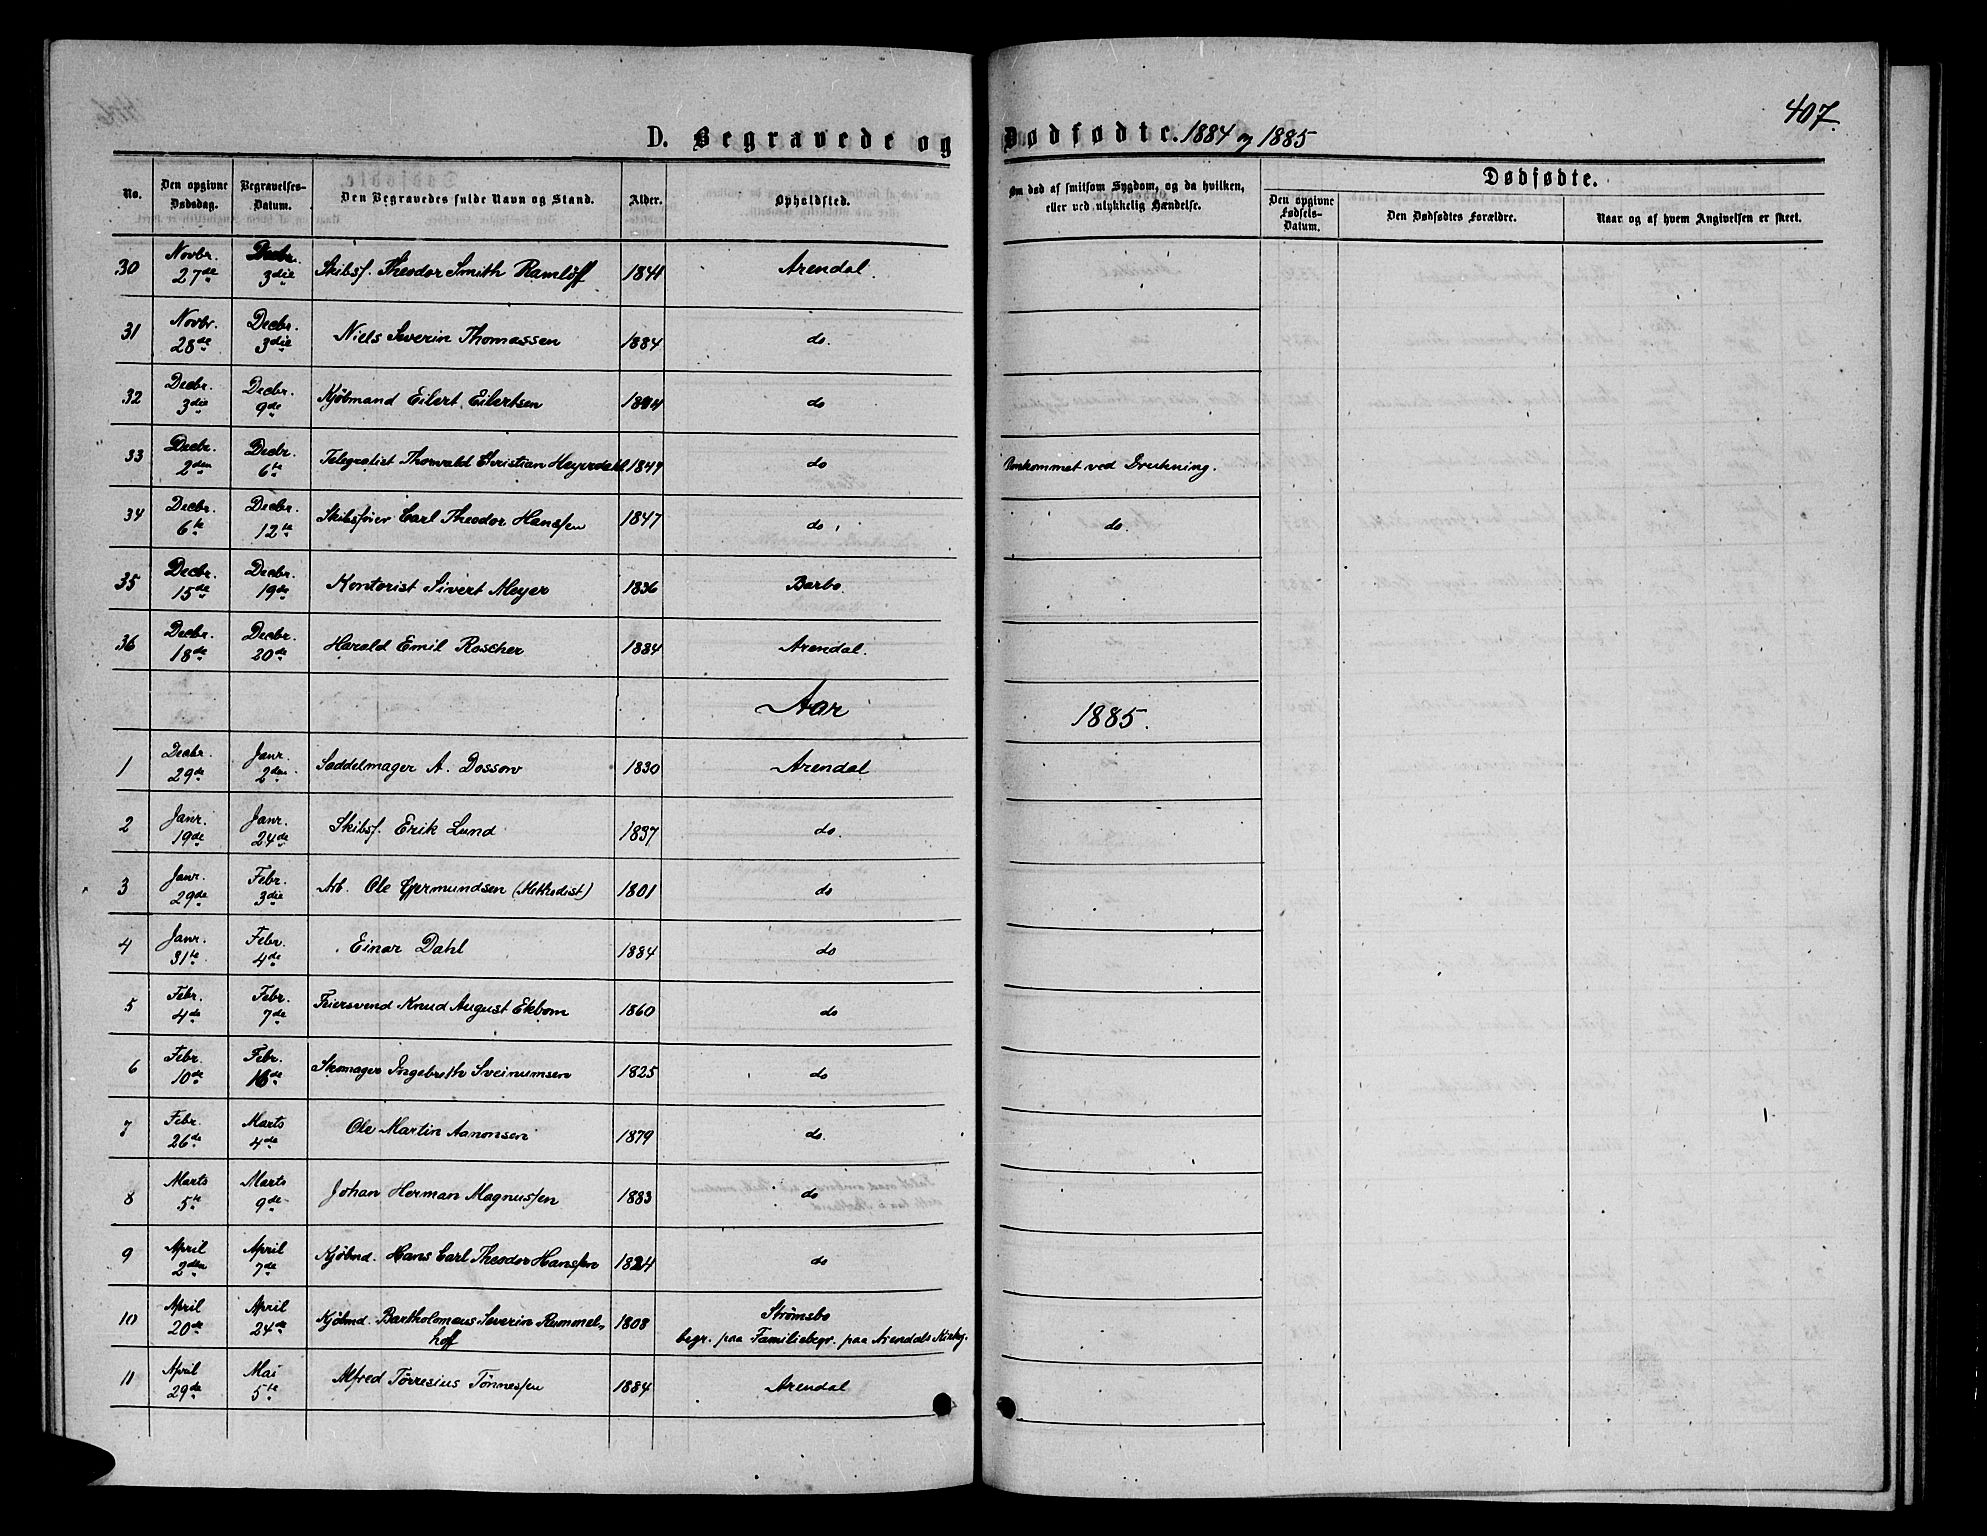 407.
D. Begravede og Dødfødte. 1884 og 1885
No.
Den opgivne Dødsdag.
Begravelses-Datum.
Den Begravedes fulde Navn og Stand.
Alder.
Opholdssted.
Om død af smitsom Sygdom, og da hvilken, eller ved ulykkelig Hændelse.
Dødfødte.
Den opgivne Fødsels-Datum.
Den Dødfødtes Forældre.
Naar og af hvem Angivelsen er skeet.
30 Novbr. 27de Decbr. 3die Skibsf. Theodor Smith Ramløff 1841 Arendal.
31 Novbr. 28de Decbr. 3die Niels Severin Thomassen 1884 do.
32 Decbr. 3die Decbr. 9de Kjøbmand Eilert Eilertsen do
33 Decbr. 2den Decbr. 6te Telegrafist Thorvald Christian Heyerdahl 1849 do Omkommet ved Drukning.
34 Decbr. 6te Decbr. 12te Skibsfører Carl Theodor Hanssen 1847 do do.
35 Decbr. 15de Decbr. 19de Kontorist Sivert Meyer 1836 Barbo.
36 Decbr. 18de Decbr. 20de Harald Emil Roscher 1884 Arendal.
Aar 1885.
1 Decbr. 29de Janr. 2den Saddelmager A. Dossow 1830 Arendal
2 Janr. 19de Janr. 24de Skibsf. Erik Lund 1837 do.
3 Janr. 29de Febr. 3die Arb. Ole Gjermundsen (Methodist) 1801 do
4 Janr. 31te Febr. 4de Einar Dahl 1884 do
5 Febr. 4de Febr. 7de Feiersvend Knud August Ekbom 1860 do
6 Febr. 10de Febr. 16de Skomager Ingebreth Sveinumsen 1825 do
7 Febr. 26de Marts 4de Ole Martin Aanonsen 1879 do.
8 Marts 5te Marts 9de Johan Herman Magnussen 1883 do
9 April 2den April 7de Kjøbmd. Hans Carl Theodor Hanssen 1824 do
10 April 20de April 24de Kjøbmd. Bartholomæus Severin Rummel- 1808 Strømsbo
hoff begr. paa Familiebegr. paa Arendals Kirkeg.
11 April 29de Mai 5te Alfred Tørresius Tønnessen 1884 Arendal